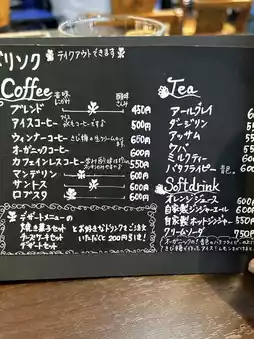 ドリンク テイクアウトできます
Coffee
苦味 酸味
ブレンド 450円
アイスコーヒー 500円
ウィンナーコーヒー 600円
オーガニックコーヒー 600円
カフェインレスコーヒー 550円
マンデリン 600円
サントス 600円
ロブスタ 600円
デザートメニューの
焼き菓子セット
チーズケーキセット
デザートセット
とお好きなドリンクをご注文
いただくと200円引き!
Tea
アールグレイ 600円
ダージリン
アッサム
ウバ
ミルクティー
バタフライピー 青色。
Softdrink
オレンジジュース 600円
自家製ジンジャーエール 600円
自家製ホットジンジャー 550円
クリームソーダ 750円